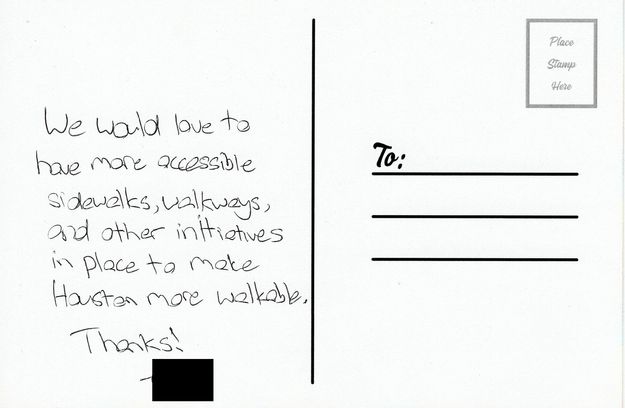 We would love to
have more accessible
sidewalks, walkways,
and other initiatives
in place to make
Houston more walkable.
Thanks!
-
Place
Stamp
Here
To: